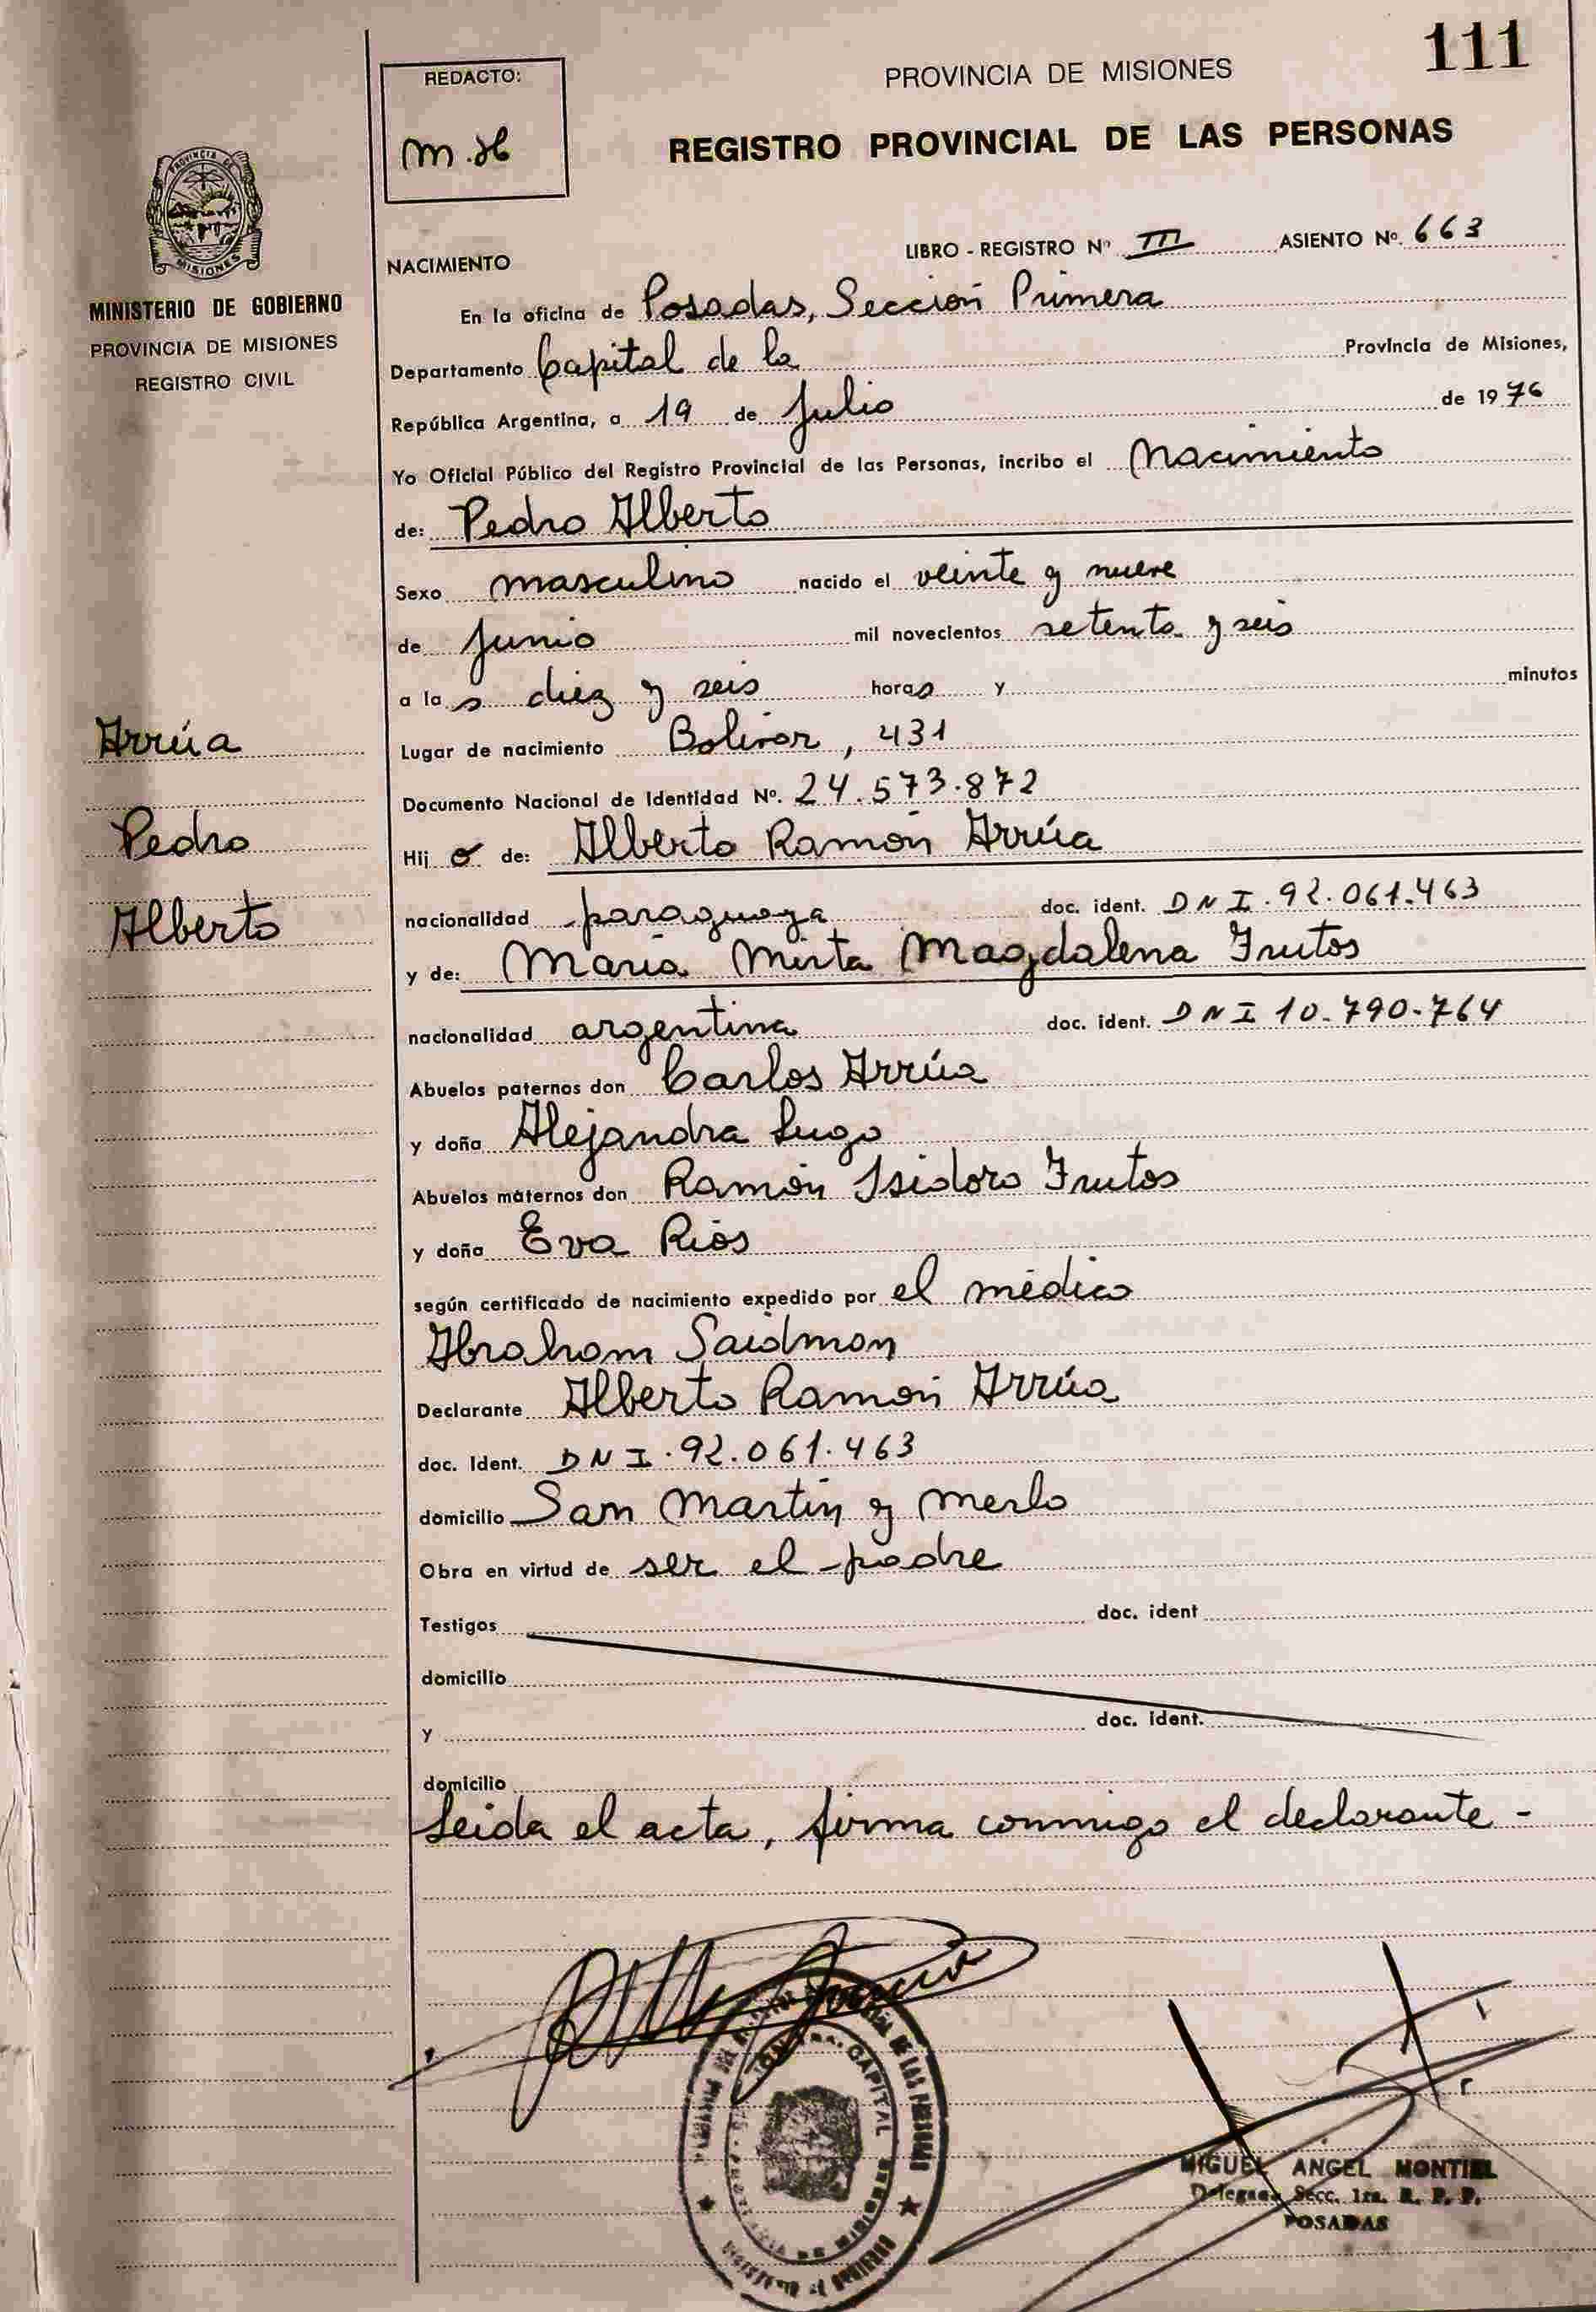 111
PROVINCIA DE MISIONES
REDACTO:
M.H
REGISTRO PROVINCIAL DE LAS PERSONAS
PROVINCIA DE
MISIONES
MINISTERIO DE GOBIERNO
PROVINCIA DE MISIONES
REGISTRO CIVIL
LIBRO - REGISTRO Nº III ASIENTO Nº. 663
NACIMIENTO
En la oficina de Posadas, Sección Primera
Departamento Capital de la Provincia de Misiones,
República Argentina, a 19 de Julio de 1976
Yo Oficial Público del Registro Provincial de las Personas, incribo el Nacimiento
de: Pedro Alberto
Sexo masculino nacido el veinte y nueve
de Junio mil novecientos setenta y seis
a la s diez y seis horas y minutos
Arrúa
Lugar de nacimiento Bolivar, 431
Documento Nacional de Identidad Nº. 24.573.872
Pedro
Hij o de: Alberto Ramón Arrúa
Alberto
nacionalidad paraguaya doc. ident. DNI. 92.061.463
y de: María Mirta Magdalena Frutos
nacionalidad argentina doc. ident. DNI 10.790.764
Abuelos paternos don Carlos Arrúa
y doña Alejandra Lugo
Abuelos maternos don Ramón Isidoro Frutos
y doña Eva Ríos
según certificado de nacimiento expedido por el médico
Abraham Saidman
Declarante Alberto Ramón Arrúa
doc. Ident. DNI. 92.061.463
domicilio San Martín y Merlo
Obra en virtud de ser el padre
Testigos doc. ident
domicilio
y doc. ident.
domicilio
Leida el acta, firma conmigo el declarante -
DE LAS PERSONAS
CAPITAL
MIGUEL ANGEL MONTIEL
Delegado Secc. 1ra. R. P. P.
POSADAS